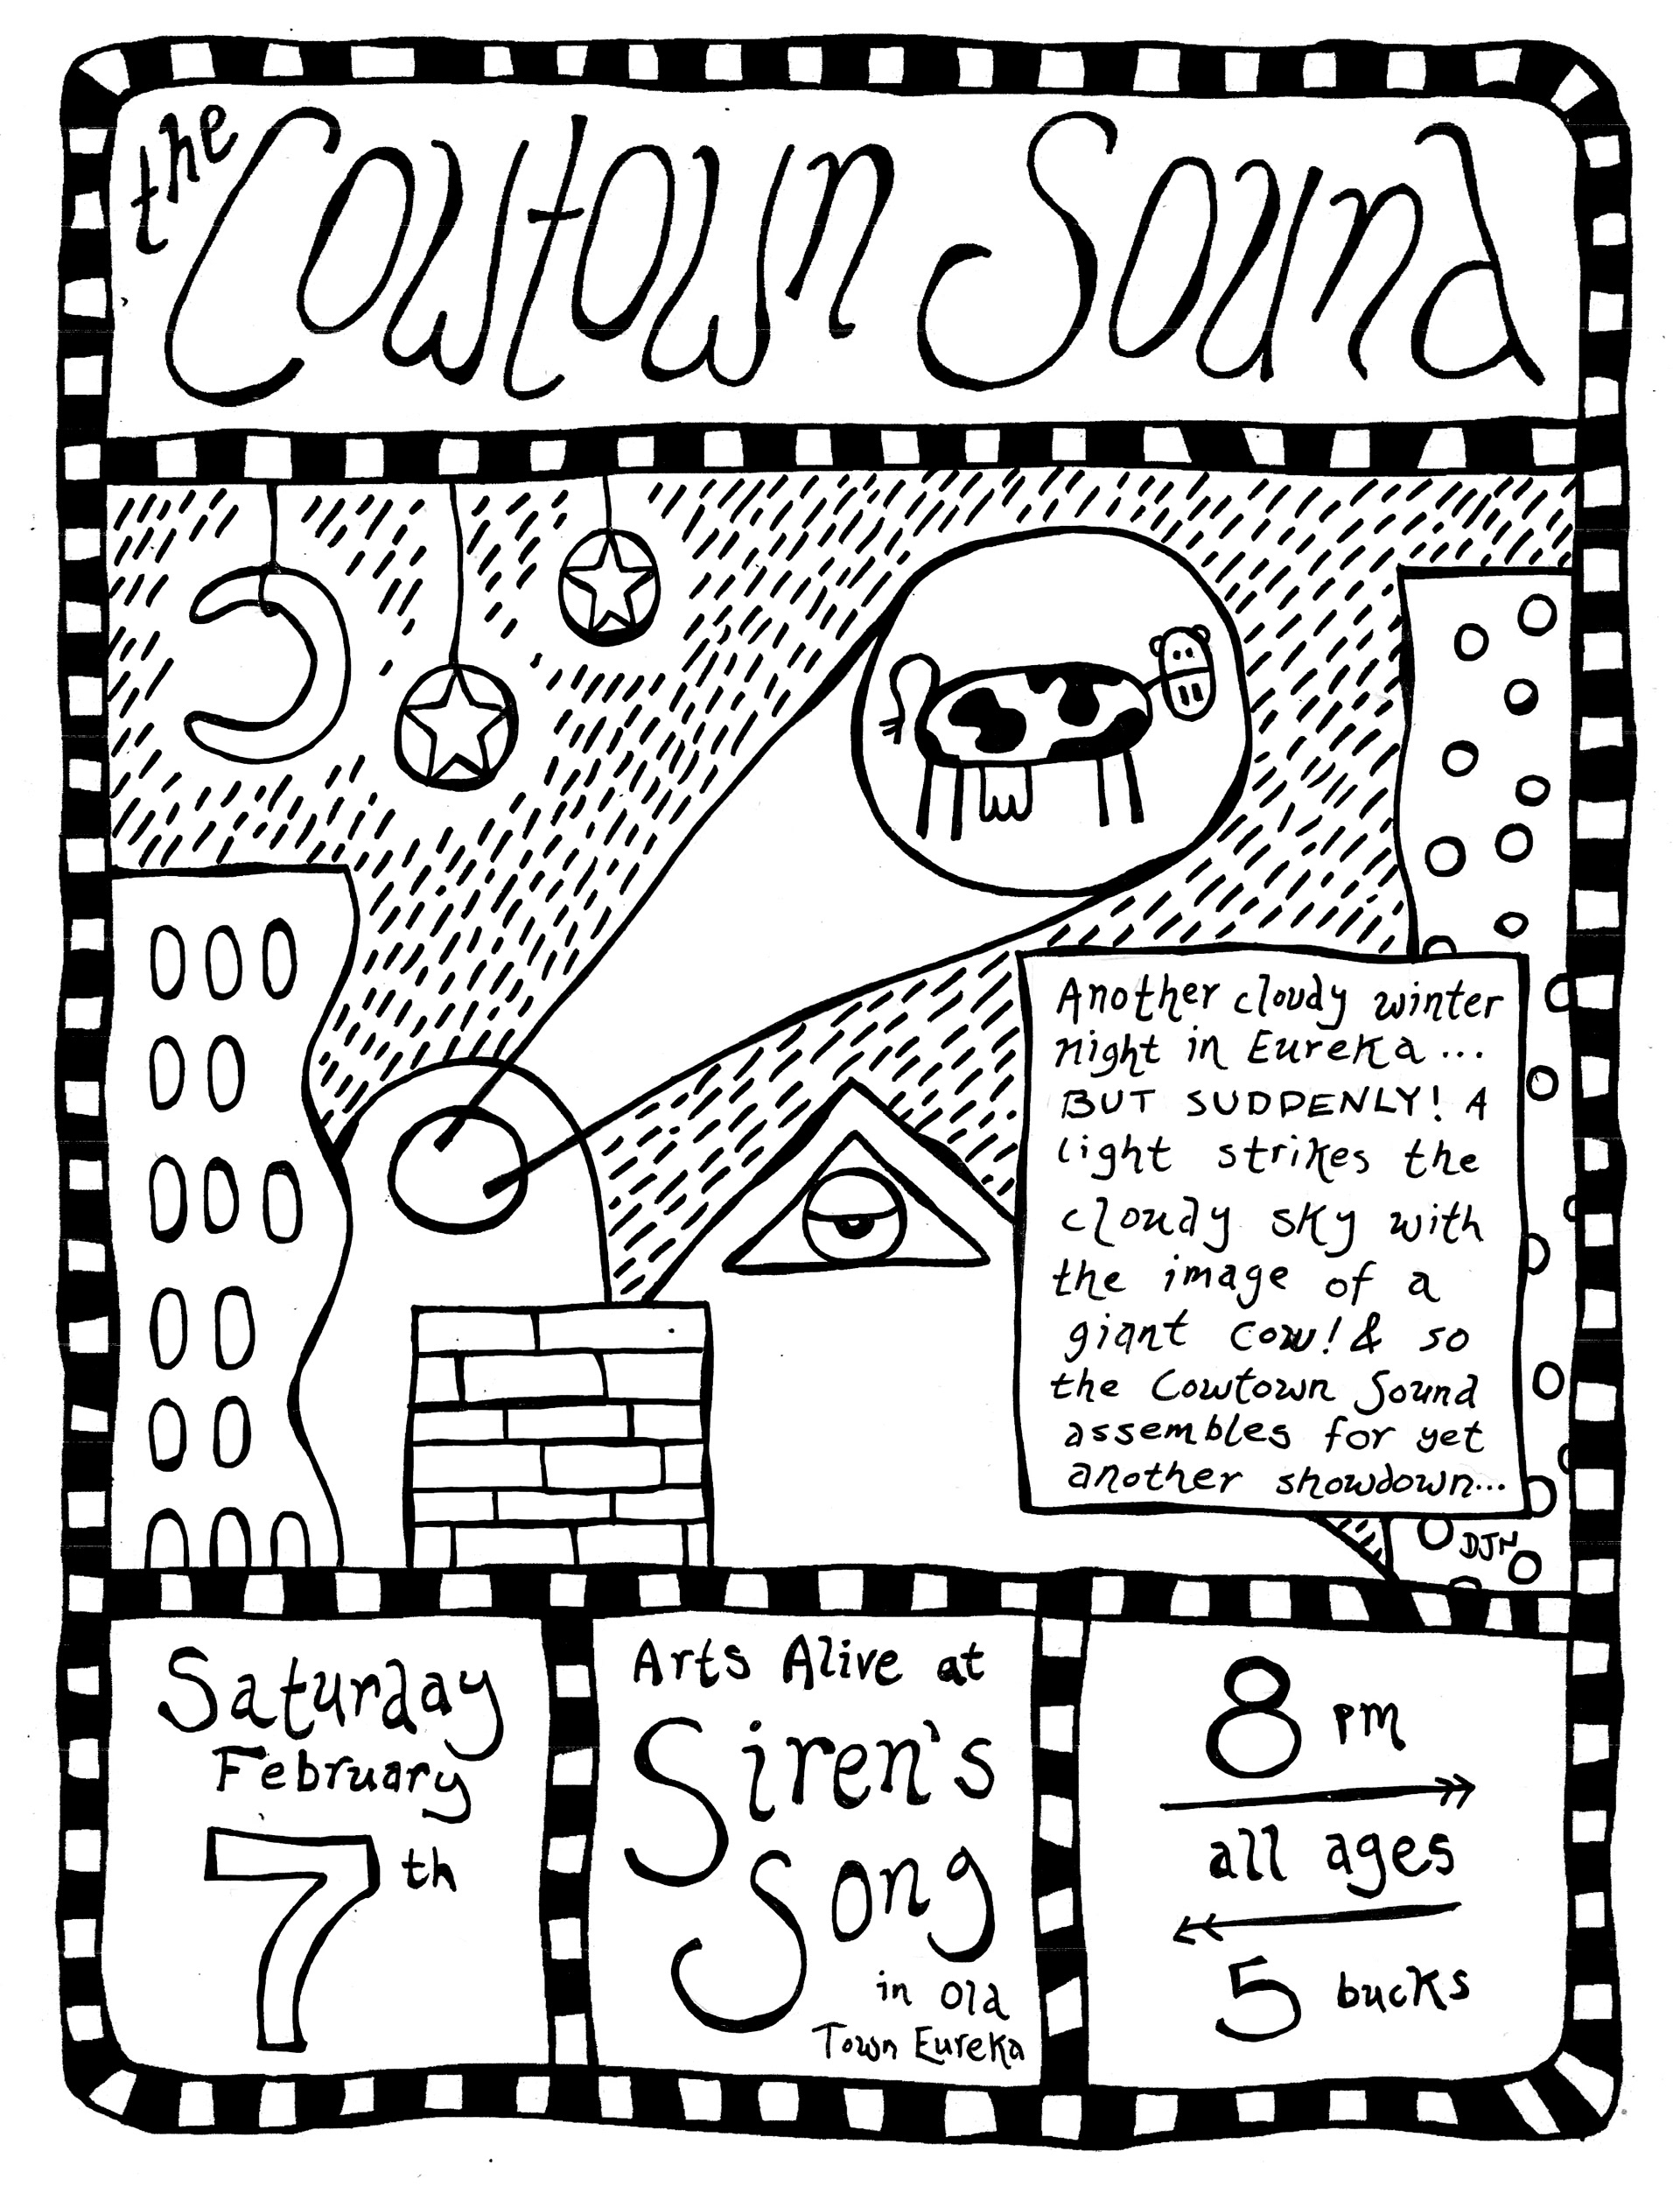 the Cowtown Sound
Another cloudy winter
night in Eureka...
BUT SUDDENLY! A
light strikes the
cloudy sky with
the image of a
giant cow! & so
the Cowtown Sound
assembles for yet
another showdown...
Saturday
February
7th
Arts Alive at
Siren's
Song
in Old
Town Eureka
8 pm
all ages
5 bucks